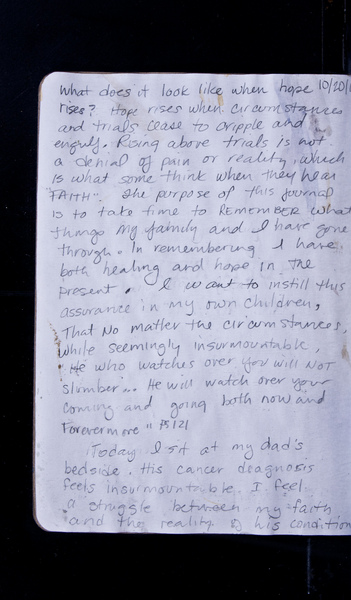 What does it look like when hope 10/20/1
rises? Hope rises when circumstances
and trials cease to cripple and
engulf. Rising above trials is not
a denial of pain or reality, which
is what some think when they hear
"FAITH". The purpose of this journal
is to take time to REMEMBER what
things my family and I have gone
through. In remembering I have
both healing and hope in the
present. I want to instill this
assurance in my own children,
That No matter the circumstances,
while seemingly insurmountable,
"He who watches over you will NOT
slumber... He will watch over your
coming and going both now and
Forevermore" PS 121
Today I sit at my dad's
bedside. His cancer deagnosis
feels insurmountable. I feel
a struggle between my faith
and the reality of his condition